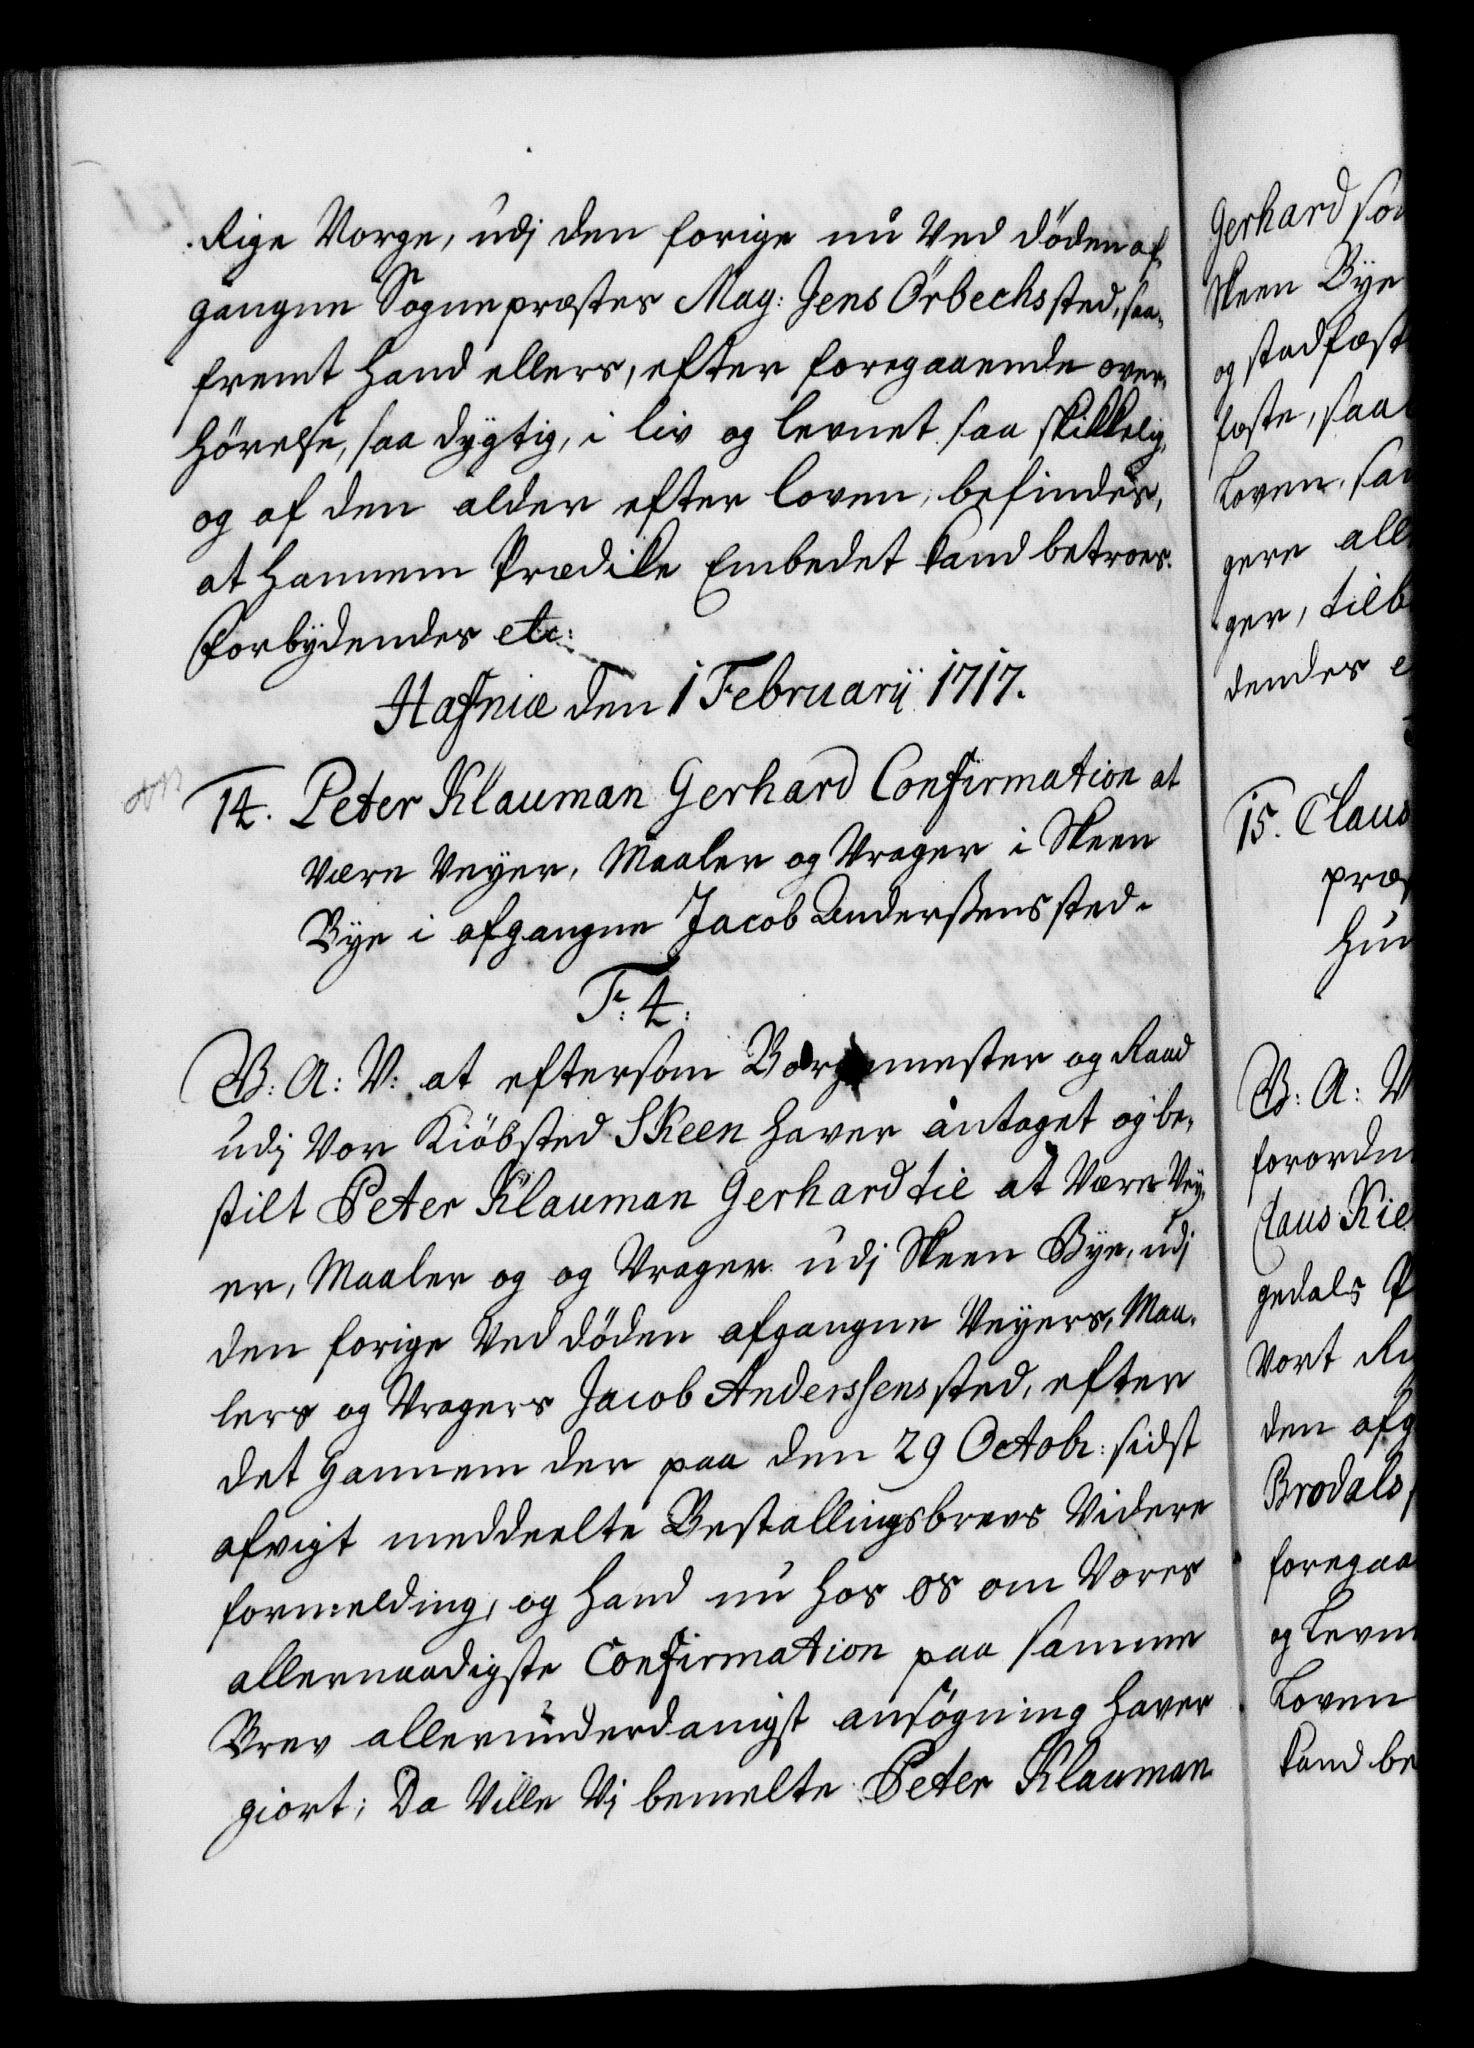 Rige Norge, udj den forige nu Ved döden af-
gangne Sognepræstes Mag: Jens Örbechs sted, saa-
fremt hand ellers, efter foregaaende over-
hörelse, saa dygtig, i liv og levnet saa skikkelig,
og af den alder efter loven, befindes,
at hannem Prædike Embedet kand betroes.
Forbydendes etc:
Hafniæ den 1 Februarij 1717.
14. Peter Klauman Gerhard Confirmation at
Være Veyer, Maaler og Vrager i Skeen
Bye i afgangne Jacob Anderssens sted.
T: 4:
G: A: V: at eftersom Borgemester og Raad
udj Vor Kiöbsted Skeen haver antaget og be-
stilt Peter Klauman Gerhard til at Være Vey-
er, Maaler og og Vrager udj Skeen Bye, udj
den forige Ved döden afgangne Veyers, Maa-
lers og Vragers Jacob Anderssens sted, efter
det hannem der paa den 29 Octobr: sidst
afvigt meddeelte Bestallingsbrevs Videre
formelding, og hand nu hos os om Vores
allernaadigste Confirmation paa samme
Brev allerunderdanigst ansögning haver
giort; Da Ville Vi bemelte Peter Klauman
Gerhard
Skeen Bye
og stadfæst
fæste, saa
Loven, saa
gere all
ger, tilb
dendes e
15. Claus
præs
Hun
G: A: V
forordn
Claus Kie
gedals P
Vort Ri
den afg
Brodals,
foregaa
og Levn
Loven
kand be